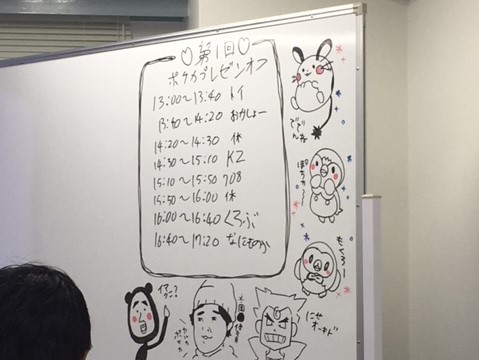 ♡第1回♡
ポケカプレゼンオフ
13:00〜13:40 トイ
13:40〜14:20 おかしょー
14:20〜14:30 休
14:30〜15:10 K2
15:10〜15:50 708
15:50〜16:00 休
16:00〜16:40 くろぶ
16:40〜17:20 なにものか
ででんね
ぽちゃ〜
もくろー
イマクニ?
にせオーキド